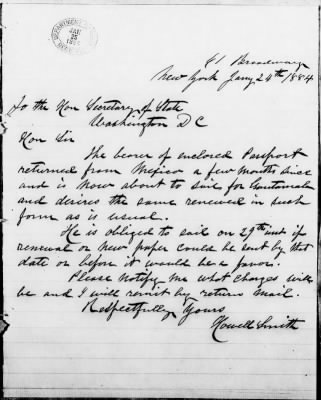 DEPARTMENT OF STATE
JAN
25
1884
61 Broadway
New York Jany 24th 1884
To the Hon Secretary of State
Washington DC
Hon Sir
The bearer of enclosed Passport
returned from Mexico a few months since
and is now about to sail for Guatemala
and desires the same renewed in such
form as is usual.
He is obliged to sail on 29th inst if
renewal or new paper could be sent by that
date or before it would be a favor.
Please notify me what charges will
be and I will remit by return mail.
Respectfully Yours
Howell Smith